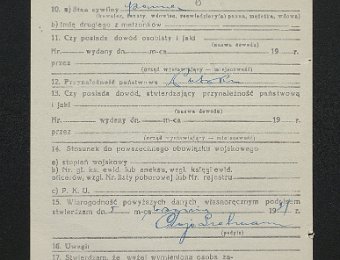 10. a) Stan cywilny panna
(kawaler, panny, wdowa, rozwiedziony(a) panna, mężatka, wdowa)
b) Imię drugiego z małżonków
11. Czy posiada dowód osobisty i jaki
(nazwa dowodu)
Nr. wydany dn. m-ca 19 r.
przez
(urząd wystawiający — miejscowość)
12. Przynależność państwowa
13. Czy posiada dowód, stwierdzający przynależność państwową
i jaki
(nazwa dowodu)
Nr. wydany dn. m-ca 19 r.
przez
(urząd wystawiający — miejscowość)
14. Stosunek do powszechnego obowiązku wojskowego
a) stopień wojskowy
b) Nr. gł. ks. ewid. lub aneksu, wzgl. księgi ewid.
oficerów, wzgl. Nr. listy poborowej lub Nr. rejestru
c) P. K. U.
15. Wiarogodność powyższych danych własnoręcznym podpisem
stwierdzam dn. m-ca 19 r.
(podpis)
16. Uwagi
17. Stwierdzam, że wyżej wymieniona osoba za-